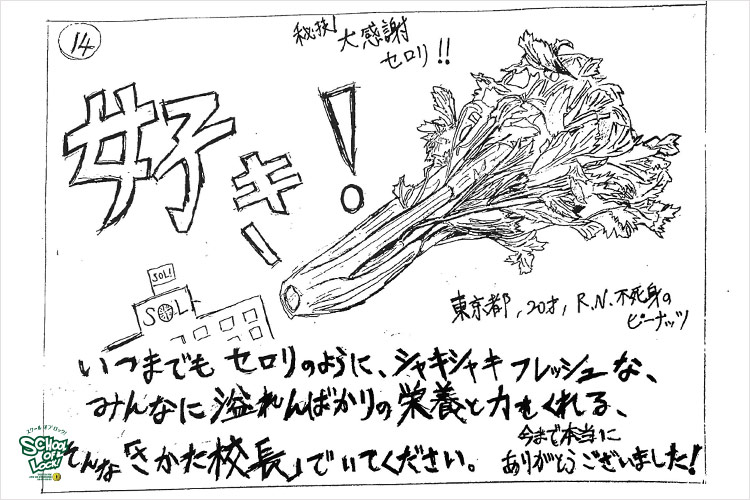 14
秘技！大感謝
セロリ!!
好キー！
SOL!
SOL
東京都，20才，R.N.不死身の
ピーナッツ
いつまでも セロリのように、シャキシャキ フレッシュな、
みんなに 溢れんばかりの 栄養と力をくれる、
そんな「さかた校長」でいてください。
今まで本当に
ありがとうございました！
スクールオブロック！
SCHOOL OF LOCK!